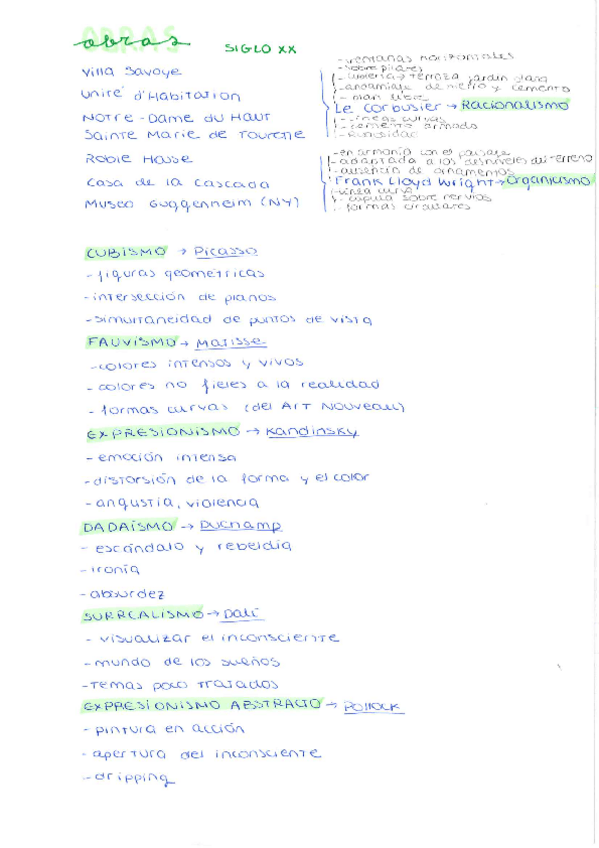 OBRAS
obras
SIGLO XX
Villa Savoye
Unité d'Habitation
NOTRE-DAME DU HAUT
Sainte Marie de Tourette
ROBIE HOUSE
CASA DE LA CASCADA
MUSEO GUGGENHEIM (NY)
- ventanas horizontales
- sobre pilares
- cubierta → terraza jardín plana
- andamiaje de metro y cemento
- plan libre
Le Corbusier → Racionalismo
- líneas curvas
- cemento armado
- rugosidad
- en armonía con el paisaje
- adaptada a los desniveles del terreno
- ausencia de ornamentos
Frank Lloyd Wright → Organicismo
- línea curva
- cúpula sobre nervios
- formas circulares
CUBISMO → Picasso
- figuras geométricas
- intersección de planos
- simultaneidad de puntos de vista
FAUVISMO → Matisse
- colores intensos y vivos
- colores no fieles a la realidad
- formas curvas (del ART NOUVEAU)
EXPRESIONISMO → Kandinsky
- emoción intensa
- distorsión de la forma y el color
- angustia, violencia
DADAÍSMO → Duchamp
- escándalo y rebeldía
- ironía
- absurdez
SURREALISMO → Dalí
- visualizar el inconsciente
- mundo de los sueños
- temas poco tratados
EXPRESIONISMO ABSTRACTO → Pollock
- pintura en acción
- apertura del inconsciente
- dripping